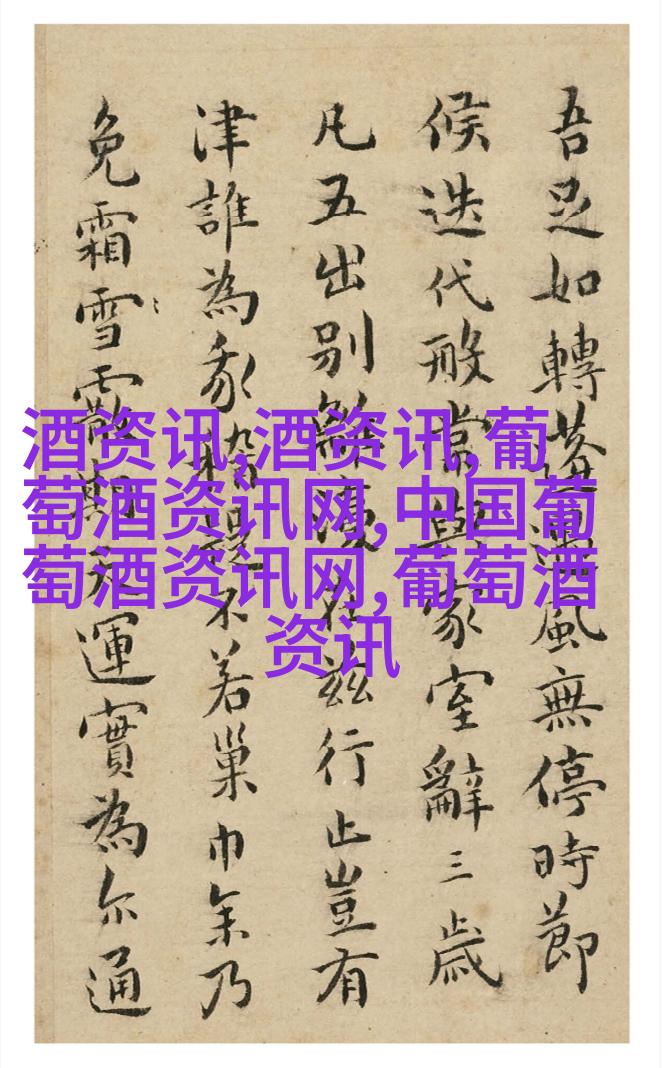 酒资讯,酒资讯,葡
萄酒资讯网,中国葡
萄酒资讯网,葡萄酒
资讯
吾足如轉蓬風無停時節
候迭代般與家室辭三歲
凡五出別兹行止豈有
津誰為我不若巢巾乃
免霜雪霰運實為尔通